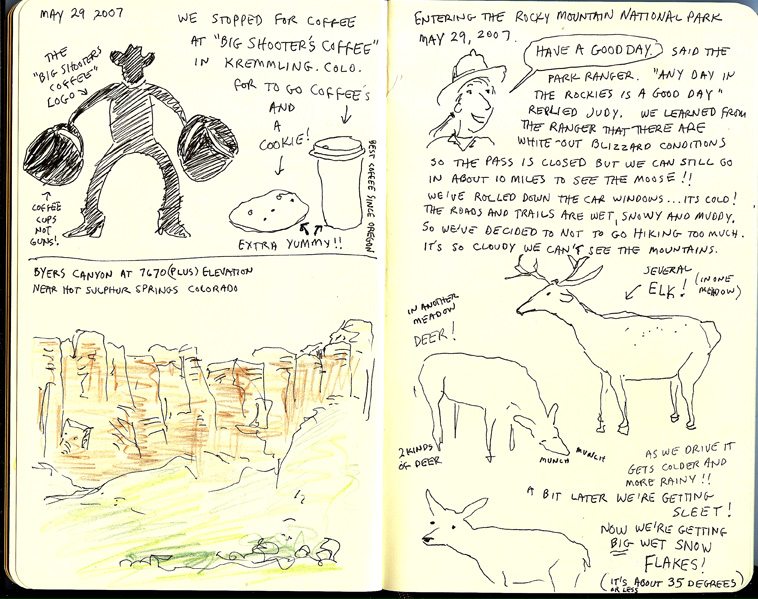 MAY 29 2007
WE STOPPED FOR COFFEE
AT "BIG SHOOTER'S COFFEE"
IN KREMMLING. COLO.
FOR TO GO COFFEE'S
AND
A
COOKIE!
THE
"BIG SHOOTERS
COFFEE"
LOGO
COFFEE
CUPS
NOT
GUNS!
BEST COFFEE SINCE OREGON
EXTRA YUMMY!!
BYERS CANYON AT 7670 (PLUS) ELEVATION
NEAR HOT SULPHUR SPRINGS COLORADO
ENTERING THE ROCKY MOUNTAIN NATIONAL PARK
MAY 29, 2007.
HAVE A GOOD DAY. SAID THE
PARK RANGER. "ANY DAY IN
THE ROCKIES IS A GOOD DAY"
REPLIED JUDY. WE LEARNED FROM
THE RANGER THAT THERE ARE
WHITE-OUT BLIZZARD CONDITIONS
SO THE PASS IS CLOSED BUT WE CAN STILL GO
IN ABOUT 10 MILES TO SEE THE MOOSE!!
WE'VE ROLLED DOWN THE CAR WINDOWS...ITS COLD!
THE ROADS AND TRAILS ARE WET, SNOWY AND MUDDY,
SO WE'VE DECIDED TO NOT TO GO HIKING TOO MUCH.
IT'S SO CLOUDY WE CAN'T SEE THE MOUNTAINS.
SEVERAL
ELK! (IN ONE
MEADOW)
IN ANOTHER
MEADOW
DEER!
2 KINDS
OF DEER
MUNCH MUNCH
AS WE DRIVE IT
GETS COLDER AND
MORE RAINY!!
A BIT LATER WE'RE GETTING
SLEET!
NOW WE'RE GETTING
BIG WET SNOW
FLAKES!
(IT'S ABOUT 35 DEGREES)
OR LESS